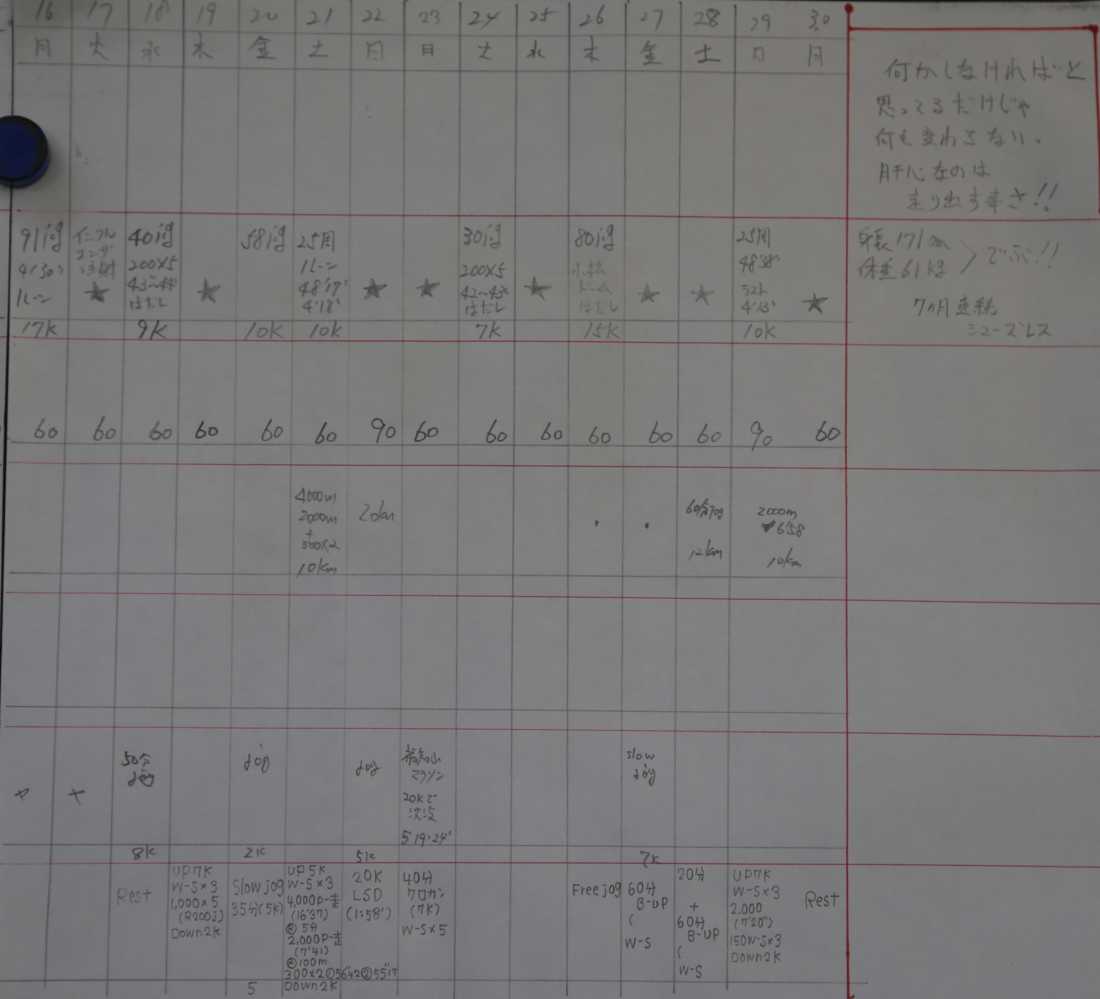 16 17 18 19 20 21 22 23 24 25 26 27 28 29 30
月 火 水 木 金 土 日 月 火 水 木 金 土 日 月
何かしなければと
思ってるだけじゃ
何も変わらない。
肝心なのは
走り出す事さ!!
91jog
4'30"
1レーン
17K
インフル
エンザ
注射
★
40jog
200×5
はだし
9K
★
58jog
10K
25周
1レーン
48'17"
4'18"
10K
★
★
30jog
200×5
はだし
7K
★
80jog
はだし
15K
★
★
25周
48'38"
ラスト
4'13"
10K
★
171cm
体重61kg
でぶ!!
7ヶ月連続
シューズレス
60 60 60 60 60 60 90 60 60 60 60 60 60 90 60
4000m
2000m
+
300×2
10km
20km
60分jog
12km
2000m
6'58
10km
50分
jog
8K
jog
2K
jog
5K
マラソン
20Kで
沈没
5°19'24"
slow
jog
7K
Rest
UP7K
W-S×3
1,000×5
(R200j)
Down2K
Slow jog
35分(5K)
5
UP5K
W-S×3
4,000P-走
(16'37)
®5分
2,000P-走
(7'41)
®100m
Down2K
20K
LSD
(1:58')
40分
クロカン
(7K)
W-S×5
Free jog
60分
B-UP
(
W-S
20分
+
60分
B-UP
(
W-S
UP7K
W-S×3
2,000
(7'20")
150W-S×3
Down2K
Rest